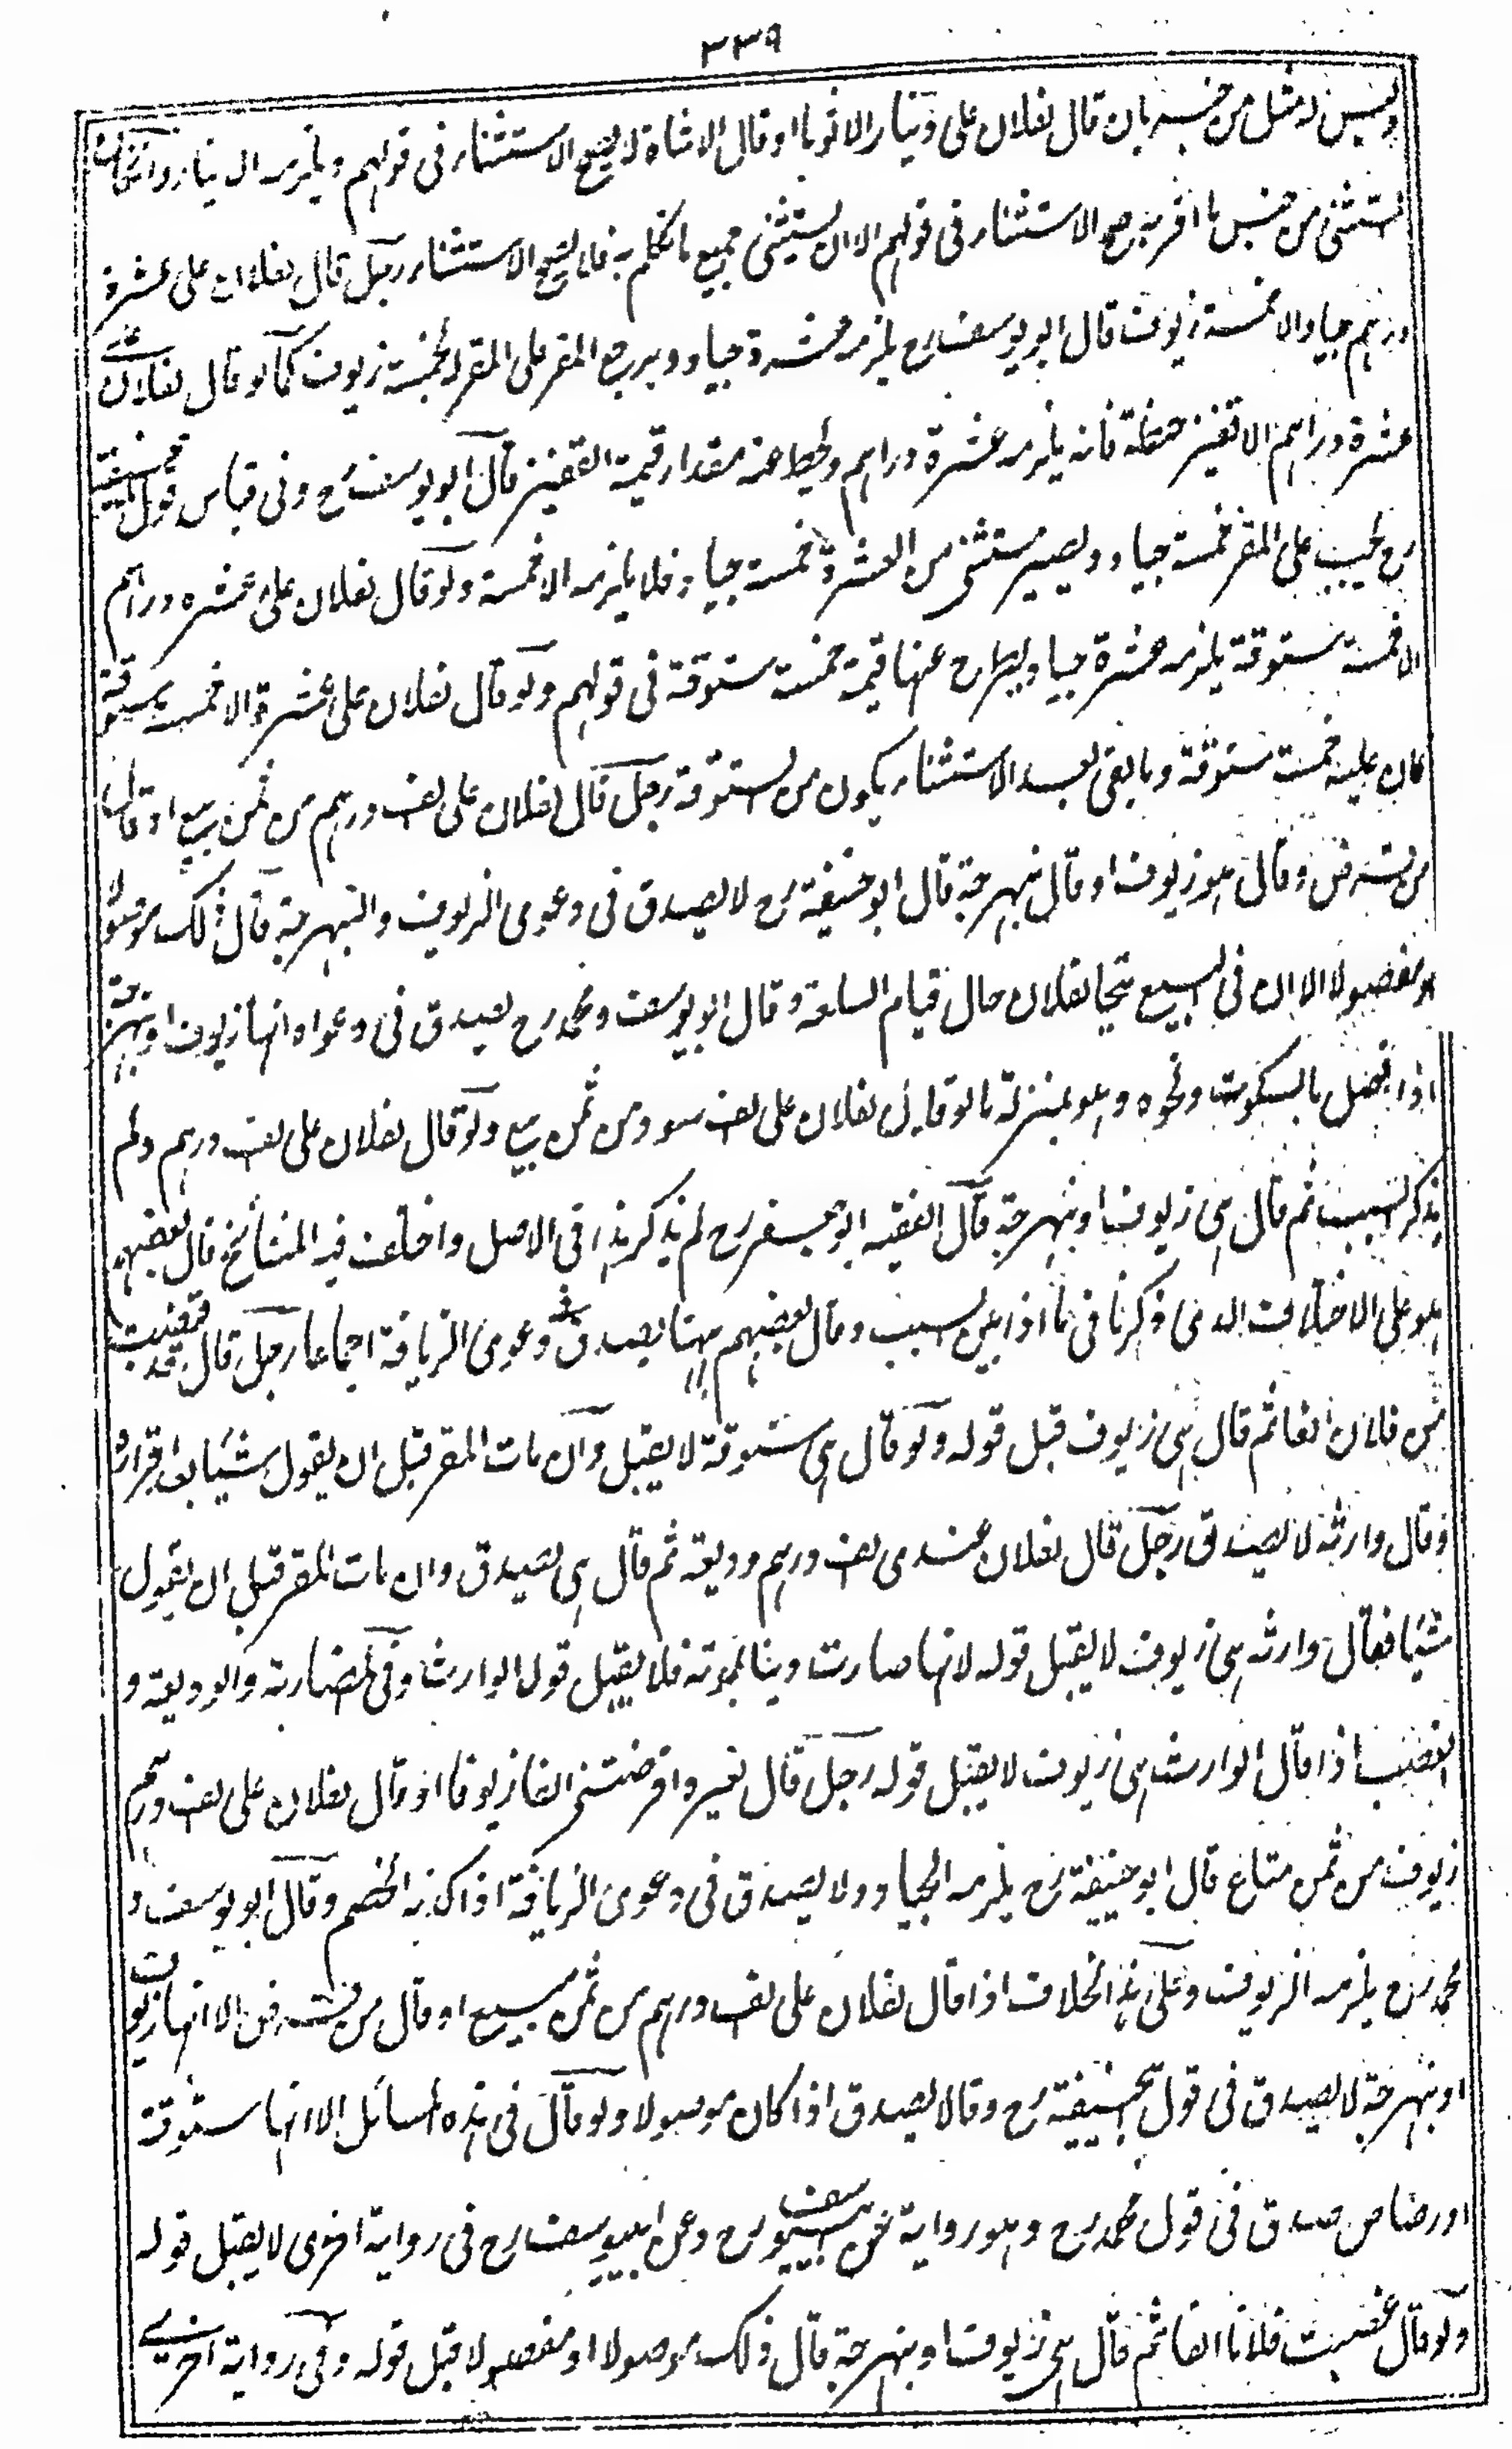 ٣٣٩
وليس له مثل من جنسه بان قال لفلان على دينار الا ثوبا او قال الا شاة لا يصح الاستثناء فى قولهم ويلزمه الدينار وان كان
المستثنى من جنس ما اقر به صح الاستثناء فى قولهم الا ان يستثنى جميع ما تكلم به فلا يصح الاستثناء رجل قال لفلان على عشرة
دراهم جياد الا خمسة زيوف قال ابو يوسف رح يلزمه عشرة جياد ويرجع المقر على المقر له بخمسة زيوف كما لو قال لفلان على
عشرة دراهم الا قفيز حنطة فانه يلزمه عشرة دراهم ويحط عنه مقدار قيمة القفيز قال ابو يوسف رح وفى قياس قول ابيحنيفة
رح يجب على المقر خمسة جياد ويصير مستثنى من العشرة خمسة جياد فلا يلزمه الا خمسة ولو قال لفلان على عشره دراهم
الا خمسة ستوقة يلزمه عشرة جياد ويطرح عنها قيمة خمسة ستوقة فى قولهم ولو قال لفلان على عشرة الا خمسة ستوقة
كان عليه خمسة ستوقة وما بقى بعد الاستثناء يكون من الستوقة رجل قال لفلان على الف درهم من ثمن بيع او قال
من قرض وقال هو زيوف او قال نبهرجة قال ابو حنيفة رح لا يصدق فى دعوى الزيوف والنبهرجة قال ذلك موصولا
او مفصولا الا ان فى البيع يتحالفان حال قيام السلعة وقال ابو يوسف ومحمد رح يصدق فى دعواه انها زيوف او نبهرجة
اذا فصل بالسكوت ونحوه وهو بمنزلة ما لو قال لفلان على الف سود من ثمن بيع ولو قال لفلان على الف درهم ولم
يذكر السبب ثم قال هى زيوف او نبهرجة قال الفقيه ابو جعفر رح لم يذكر هذا فى الاصل واختلف فيه المشائخ قال بعضهم
هو على الاختلاف الذى ذكرنا فى ما اذا بين السبب وقال بعضهم ههنا يصدق فى دعوى الزيافة اجماعا رجل قال غصبت
من فلان الفا ثم قال هى زيوف قبل قوله ولو قال هى ستوقة لا يقبل وان مات المقر قبل ان يقول شيئا بعد اقراره
وقال وارثه لا يصدق رجل قال لفلان عندى الف درهم وديعة ثم قال هى يصدق وان مات المقر قبل ان يقول
شيئا فقال وارثه هى زيوف لا يقبل قوله لانها صارت دينا بموته فلا يقبل قول الوارث وفى المضاربة والوديعة و
الغصب اذا قال الوارث هى زيوف لا يقبل قوله رجل قال لغيره اقرضتنى الفا زيوفا او قال لفلان على الف درهم
زيوف من ثمن متاع قال ابو حنيفة رح يلزمه الجياد ولا يصدق فى دعوى الزيافة اذا كذبه الخصم وقال ابو يوسف و
محمد رح يلزمه الزيوف وعلى هذا الخلاف اذا قال لفلان على الف درهم من ثمن مبيع او قال من قرض الا انها زيوف
او نبهرجة لا يصدق فى قول ابيحنيفة رح وقالا يصدق اذا كان موصولا ولو قال فى هذه المسائل الا انها ستوقة
او رصاص صدق فى قول محمد رح وهو رواية عن ابييوسف رح وعن ابييوسف رح فى رواية اخرى لا يقبل قوله
ولو قال غصبت فلانا الفا ثم قال هى زيوف او نبهرجة قال ذلك موصولا او مفصولا قبل قوله وفى رواية اخرى